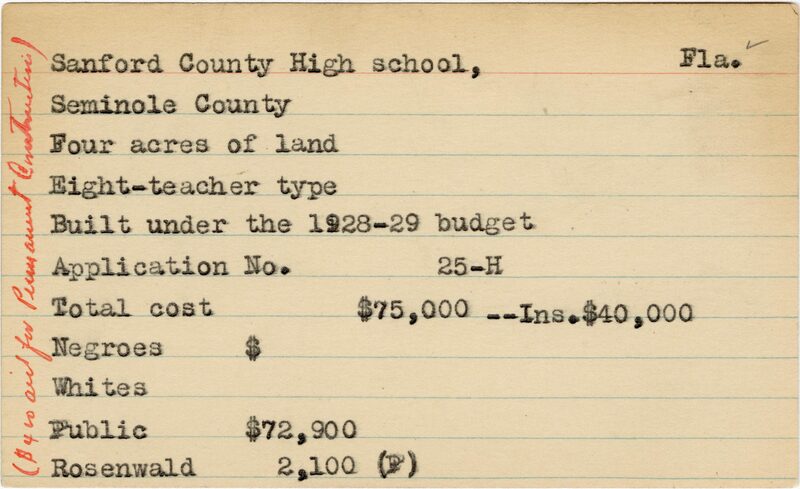 Sanford County High school, Fla.
Seminole County
Four acres of land
Eight-teacher type
Built under the 1928-29 budget
Application No. 25-H
Total cost $75,000 --Ins.$40,000
Negroes $
Whites
Public $72,900
Rosenwald 2,100 (P)
aid for Permanent Construction)